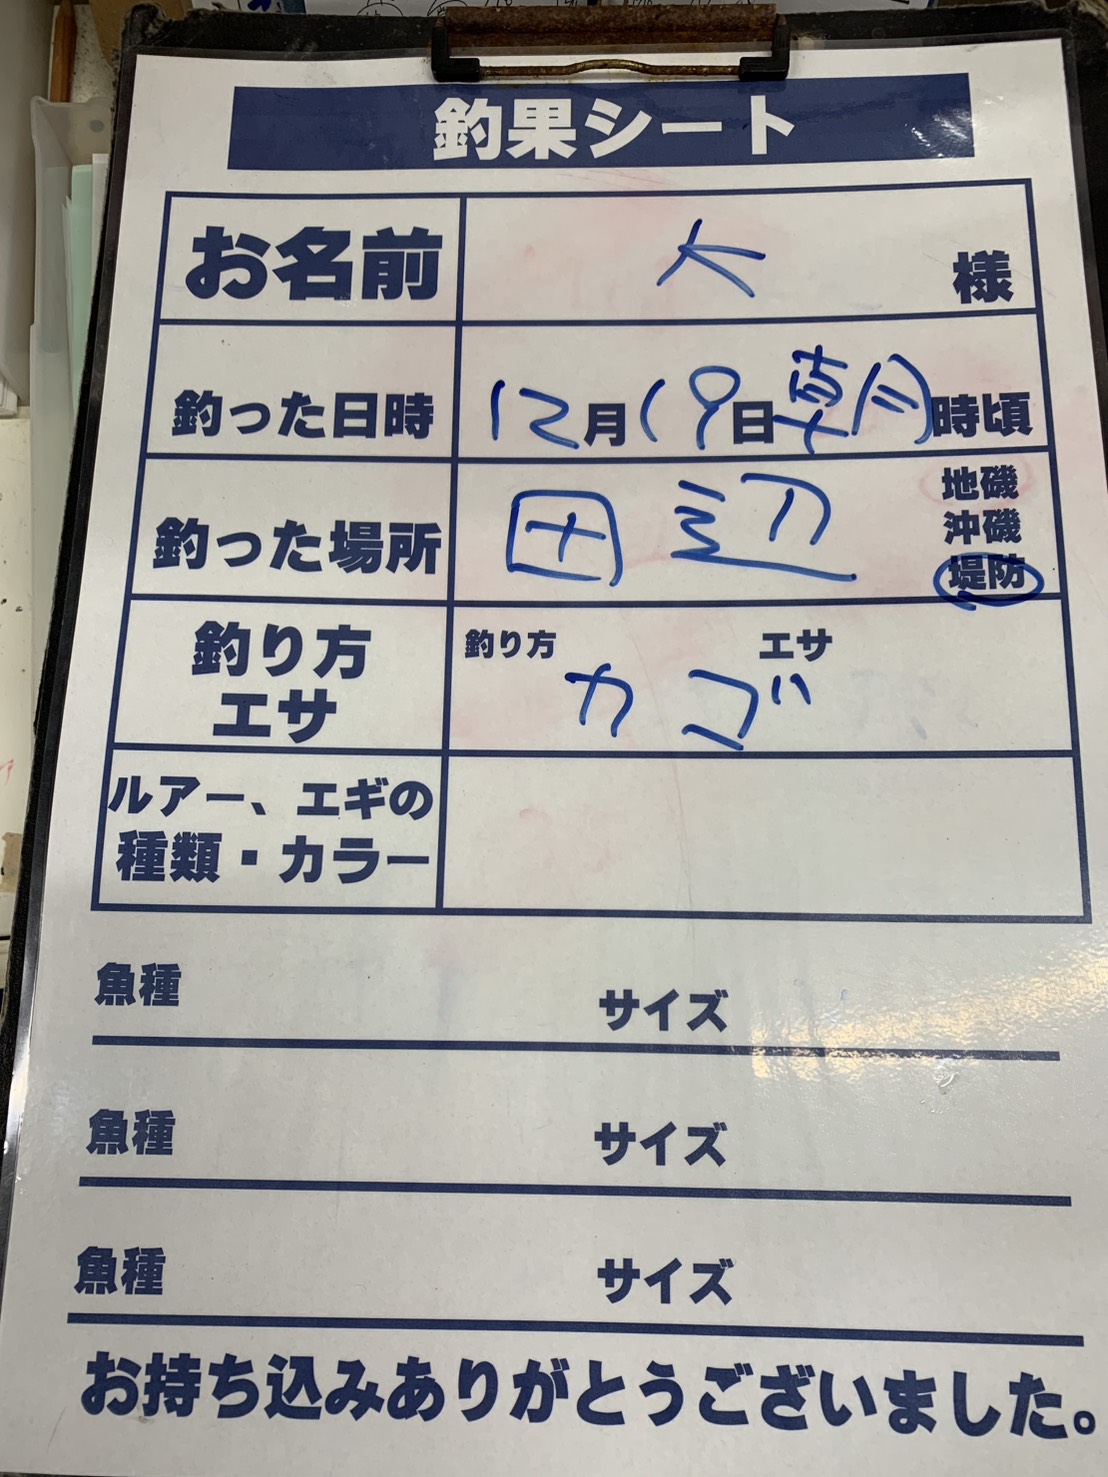 釣果シート
お名前 大 様
釣った日時 12月19日朝時頃
釣った場所 田辺 地磯
沖磯
堤防
釣り方 エサ
釣り方
エサ
カゴ
ルアー、エギの
種類・カラー
魚種 サイズ
魚種 サイズ
魚種 サイズ
お持ち込みありがとうございました。